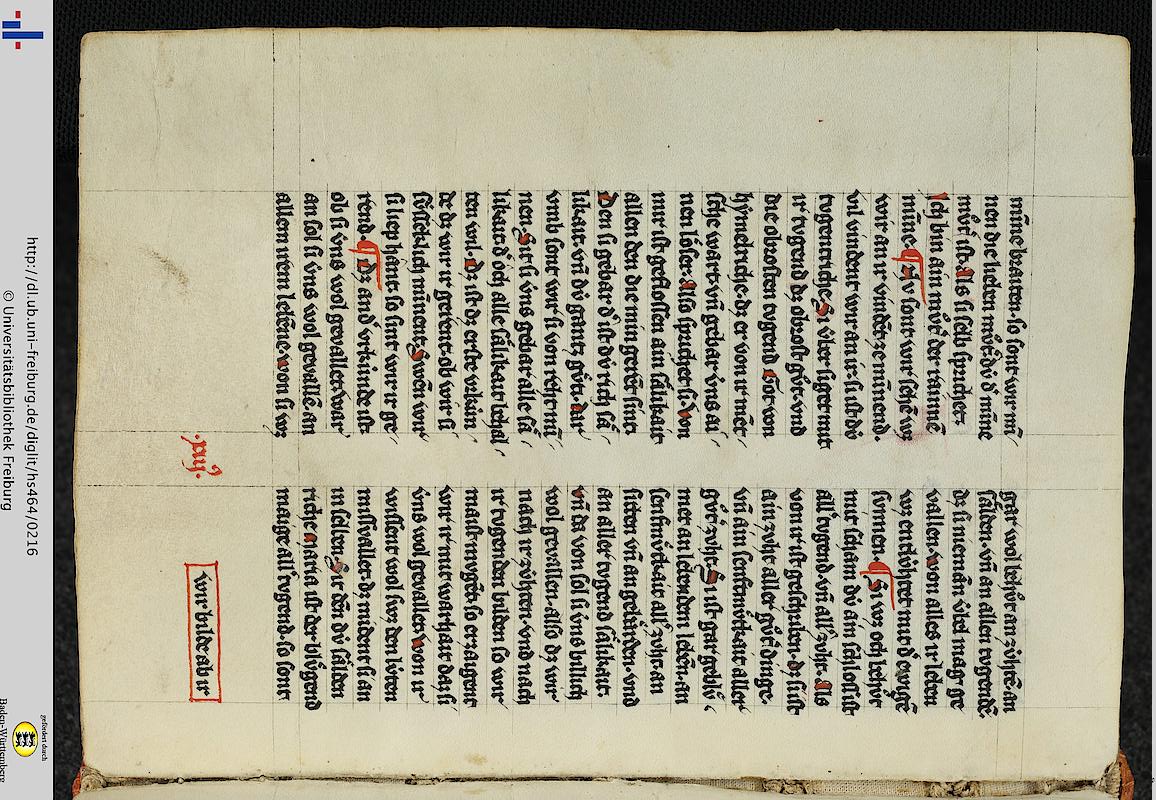 minne braiten. so sont wir ir mī/
nen die lieben mvͦter. dv́ d' minne
mvͦter ist. Als si selb sprichet.
Ich bin ain mvͦter der rainnē
minne. ¶ Nv sont wir sehē wz
wir an ir vindēt ze minnend.
vil vindent wir an ir. si ist dv́
tvgentriche. Si v́ber sigt mit
ir tvgend dz obrost gvͦt. vnd
die obrosten tvgend Got von
hymelriche. dz er von ir mēt/
sche wart. vn̄ gebar v́ns ai/
nen lȯser. Also sprichet si. Von
mir ist geflossen ain sa̍likait
allen den die min gerēt sint.
Den si gebar d' ist dv́ rich sa̍/
likait. vn̄ dv́ gantz gv̍ti. Dar
vmb sont wir si von reht mī/
nen. Sit si v́ns gebar alle sa̍/
likait. d' och alle sa̍likait behal/
ten wil. Dz ist dz erste vrkin/
de dz wir ir getent. ob wir si
sv̍sseklich minnent. Swen wir
si liep hant. so sint wir ir ge/
rend. ¶ Dz and' vrkinde ist.
ob si vns wol gevallet. War
an sol si v́ns wol gevallē. an
allem irem lebēne. won si wz
gar wol behv̍t an zv́htē. an
sa̍lden. vn̄ an allen tvgendē.
dz si nieman v́bel mag ge
vallen. won alles ir leben
wz enzv́ndet mit d' ewigē
sonnen. ¶ Si wz och behv̍t
mit scham dv́ ain schlos ist
all' tvgend. vn̄ all' zvht. Als
von ir ist geschriben. dz si ist
ain zvht aller gv̍ter dinge.
vn̄ ain senftmv̍tkait aller
gv̍ter zvht. Si ist gar geblv̍/
met an lebendem lebēn. an
senfmv̍tkait. all' zvht. an
sitten vn̄ an geba̍rden. vnd
an aller tvgend sa̍likait.
Vn̄ da von sol si v́ns billich
wol gevallen. also dz wir
nach ir zv́hten. vnd nach
ir tvgenden bilden so wir
maist mvgē. so erzaigent
wir ir mit warhait daz si
v́ns wol gevallet. Won ir
wissent wol swz den lv́ten
missvallet. dz mident si an
in selben. Sit dēn dv́ sa̍lden
riche maria ist der blv̍gend
maige all' tvgend. so sont
.xiij.
wir bilde ab ir
http://dl.ub.uni-freiburg.de/diglit/hs464/0216
© Universitätsbibliothek Freiburg
gefördert durch
Baden-Württemberg